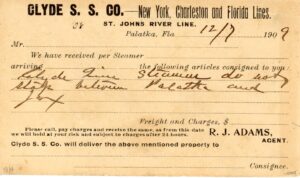 CLYDE S. S. CO.—New York, Charleston and Florida Lines.
ST. JOHNS RIVER LINE.
Palatka, Fla 12/7 1909
Mr.
We have received per Steamer
arriving the following articles consigned to you
Clyde Line Steamers do not
stop between Palatka and
Jax
Freight and Charges $
Please call, pay charges and receive the same, as from this date
we will hold at your risk and subject to charges after 24 hours.
R. J. ADAMS,
AGENT.
Clyde S. S. Co. will deliver the above mentioned property to
Consignee.